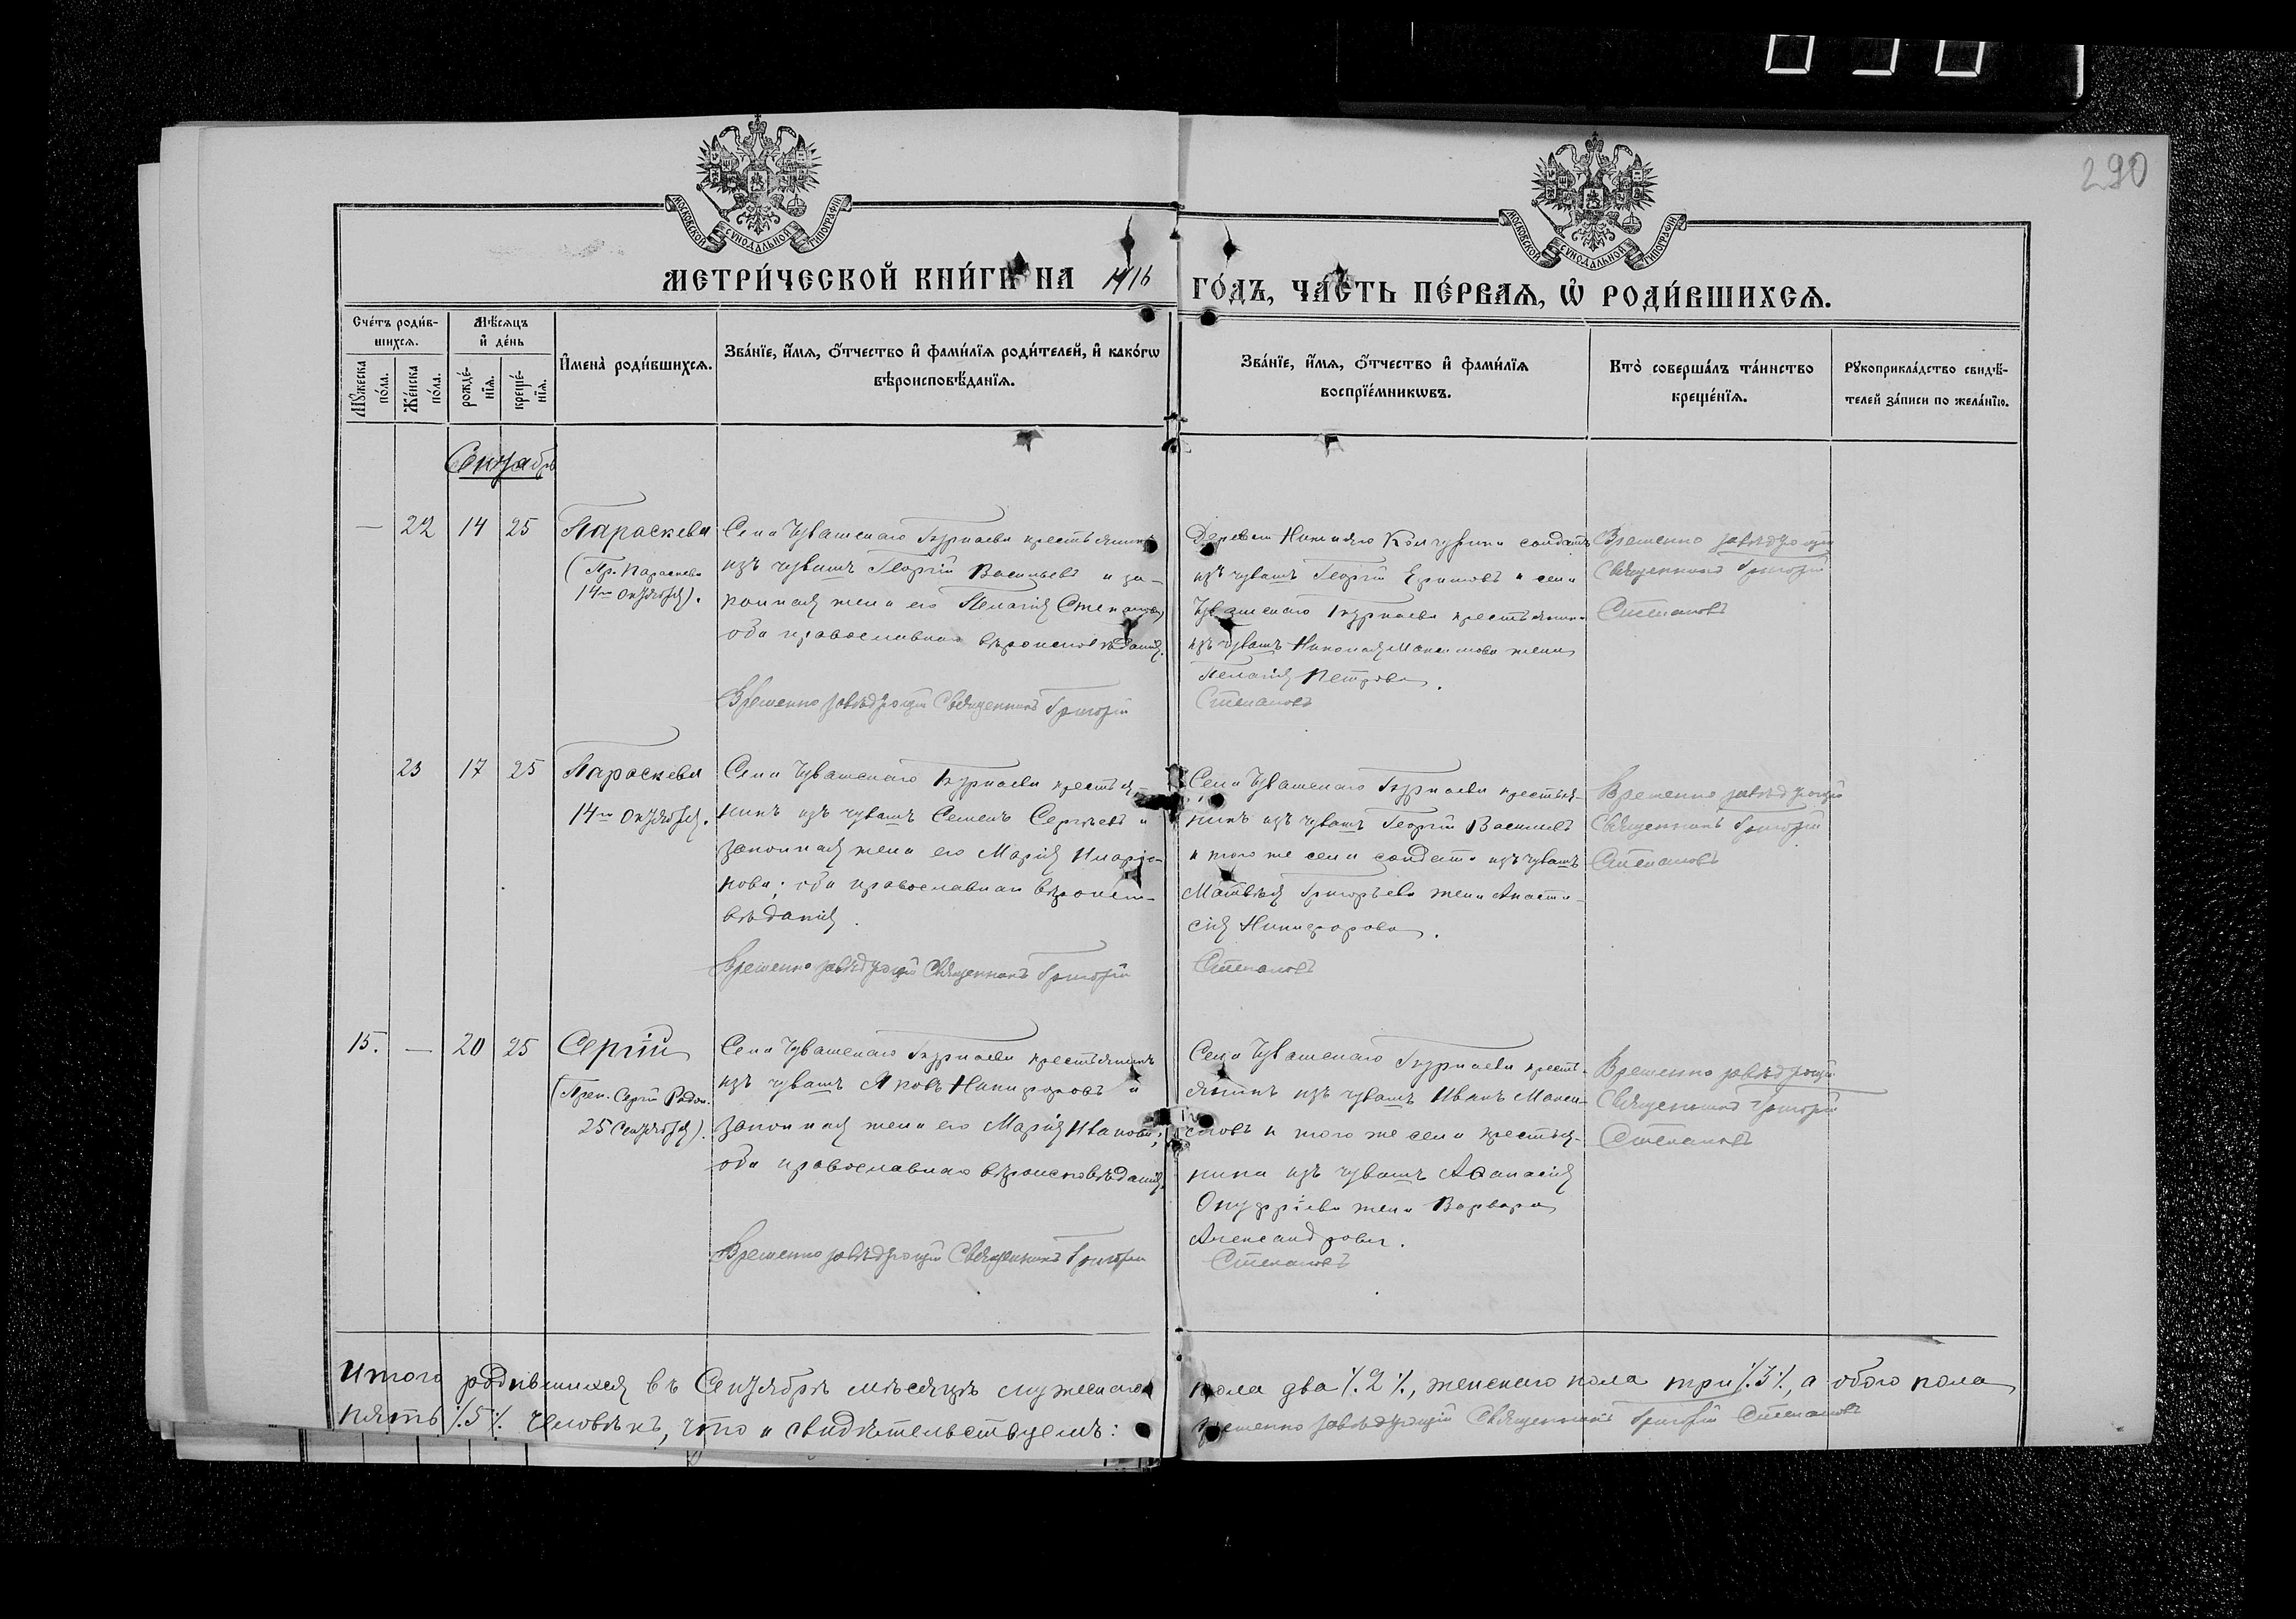 290
МОСКОВСКОЙ СѴНОДАЛЬНОЙ ТИПОГРАФІИ
МОСКОВСКОЙ СѴНОДАЛЬНОЙ ТИПОГРАФІИ
МЕТРИ́ЧЕСКОЙ КНИ́ГИ НА 1916 ГО́ДЪ, ЧА́СТЬ ПЕ́РВАЯ, Ѡ҆ РОДИ́ВШИХСЯ.
Сче́тъ роди́в-
шихсѧ.
Мꙋ́жеска по́ла.
Же́нска по́ла.
Мѣ́сѧцъ
и҆ де́нь
рожде́-
нїѧ.
креще́-
нїѧ.
И҆мена̀ роди́вшихсѧ.
Зва́нїе, и҆́мѧ, ѻ҆́тчество и҆ фами́лїѧ роди́телей, и҆ како́гѡ
вѣроисповѣ́данїѧ.
Зва́нїе, и҆́мѧ, ѻ҆́тчество и҆ фами́лїѧ
воспрїе́мникѡвъ.
Кто̀ соверша́лъ та́инство
креще́нїѧ.
Рꙋкоприкла́дство свидѣ́-
телей за́писи по жела́нїю.
Сентябрь
— 22 14 25 Параскева
(Пр. Параскевы
14го Октября).
Села Чувашскаго Бурнаева крестьянинъ
изъ чувашъ Георгій Васильевъ и за-
конная жена его Пелагія Степанова,
оба православнаго вѣроисповѣданія.
Временно завѣдующій Священникъ Григорій
Деревни солдатъ
изъ чувашъ Георгій и села
Чувашскаго Бурнаева крестьянина
изъ чувашъ Николая Максимова жена
Пелагія Петрова.
Степановъ
Временно завѣдующій
Священникъ Григорій
Степановъ
23 17 25 Параскева
14го Октября.
Села Чувашскаго Бурнаева крестья-
нинъ изъ чувашъ Семенъ Сергѣевъ и
законная жена его Марія Иларіо-
нова; оба православнаго вѣроиспо-
вѣданія.
Временно завѣдующій Священникъ Григорій
Села Чувашскаго Бурнаева крестья-
нинъ изъ чувашъ Георгій Васильевъ
и того же села солдата изъ чувашъ
Матвѣя Григорьева жена Анаста-
сія Никифорова.
Степановъ
Временно завѣдующій
Священникъ Григорій
Степановъ
15. — 20 25 Сергій
(Преп. Сергій Радон.
25 Сентября).
Села Чувашскаго Бурнаева крестьянинъ
изъ чувашъ Яковъ Никифоровъ и
законная жена его Марія Иванова;
оба православнаго вѣроисповѣданія.
Временно завѣдующій Священникъ Григорій
Села Чувашскаго Бурнаева кресть-
янинъ изъ чувашъ Иванъ Макси-
мовъ и того же села крестья-
нина изъ чувашъ Аѳанасія
Онуфріева жена Варвара
Александрова.
Степановъ
Временно завѣдующій
Священникъ Григорій
Степановъ
Итого родившихся въ Сентябрѣ мѣсяцѣ мужескаго пола два ٪2٪, женскаго пола три ٪3٪, а обоего пола
пять ٪5٪ человѣкъ, что и свидѣтельствуемъ: Временно завѣдующій Священникъ Григорій Степановъ